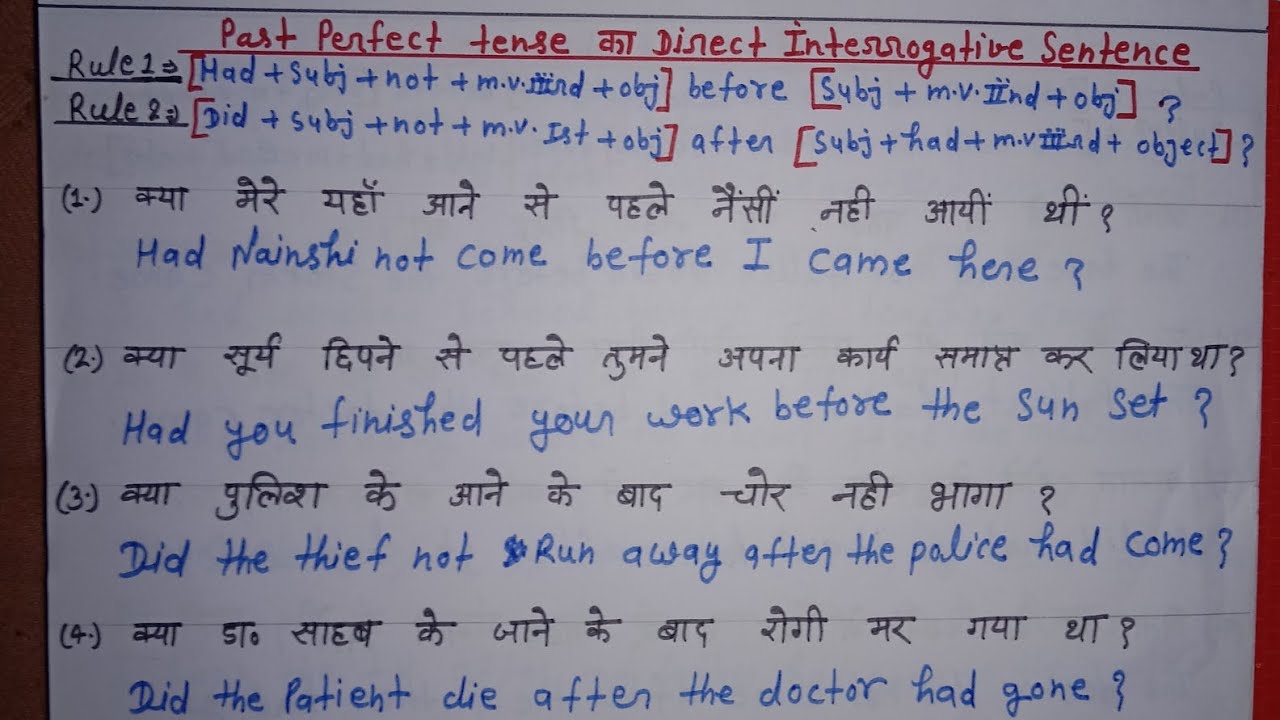 Past Perfect tense का Direct Interrogative Sentence
Rule 1⇒ [Had + subj + not + m.v.IIInd + obj] before [Subj + m.v.IInd + obj] ?
Rule 2⇒ [Did + subj + not + m.v. Ist + obj] after [subj + had + m.vIIInd + object] ?
(1.) क्या मेरे यहाँ आने से पहले नैंसीं नही आयीं थीं ?
Had Nainshi not come before I came here ?
(2.) क्या सूर्य छिपने से पहले तुमने अपना कार्य समाप्त कर लिया था ?
Had you finished your work before the sun set ?
(3.) क्या पुलिश के आने के बाद चोर नही भागा ?
Did the thief not Run away after the police had come ?
(4.) क्या डा० साहब के जाने के बाद रोगी मर गया था ?
Did the Patient die after the doctor had gone ?